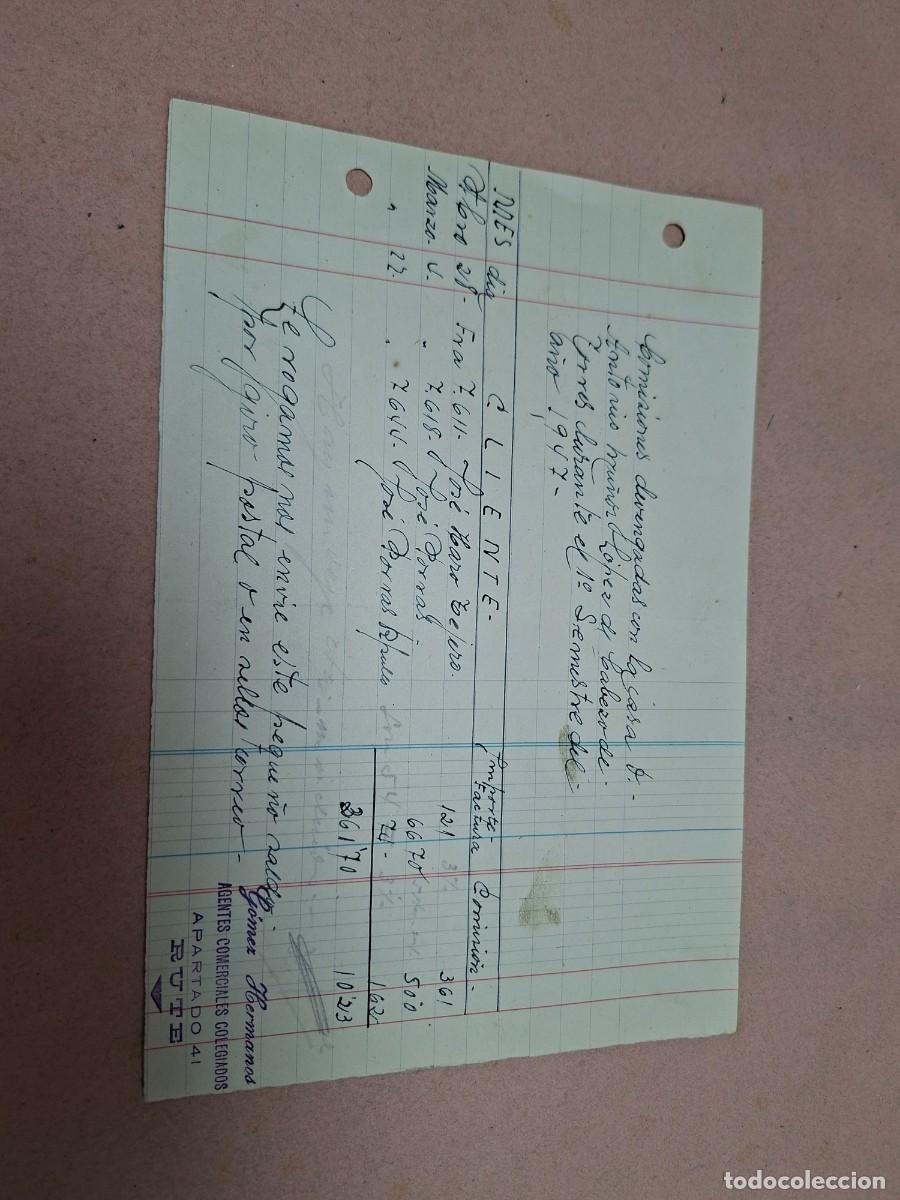 Comisiones devengadas con la casa D.-
Antonio Muñoz López de Cabezo de
Torres durante el 1º Semestre del-
año 1,947-
MES dia CLIENTE- Importe-Factura Comision-
Fbro 28- Fra 7.611- José Haro Tejero. 121 3% 361
Marzo 5- " 7.618- José Porras 66 70 5'00
" 22- " 7.644- José Porras 74- 162
261'70 10'23
Te rogamos nos envie este pequeño saldo.-
por giro postal o en sellos correo-
Gómez Hermanos
AGENTES COMERCIALES COLEGIADOS
APARTADO 41
RUTE
todocoleccion